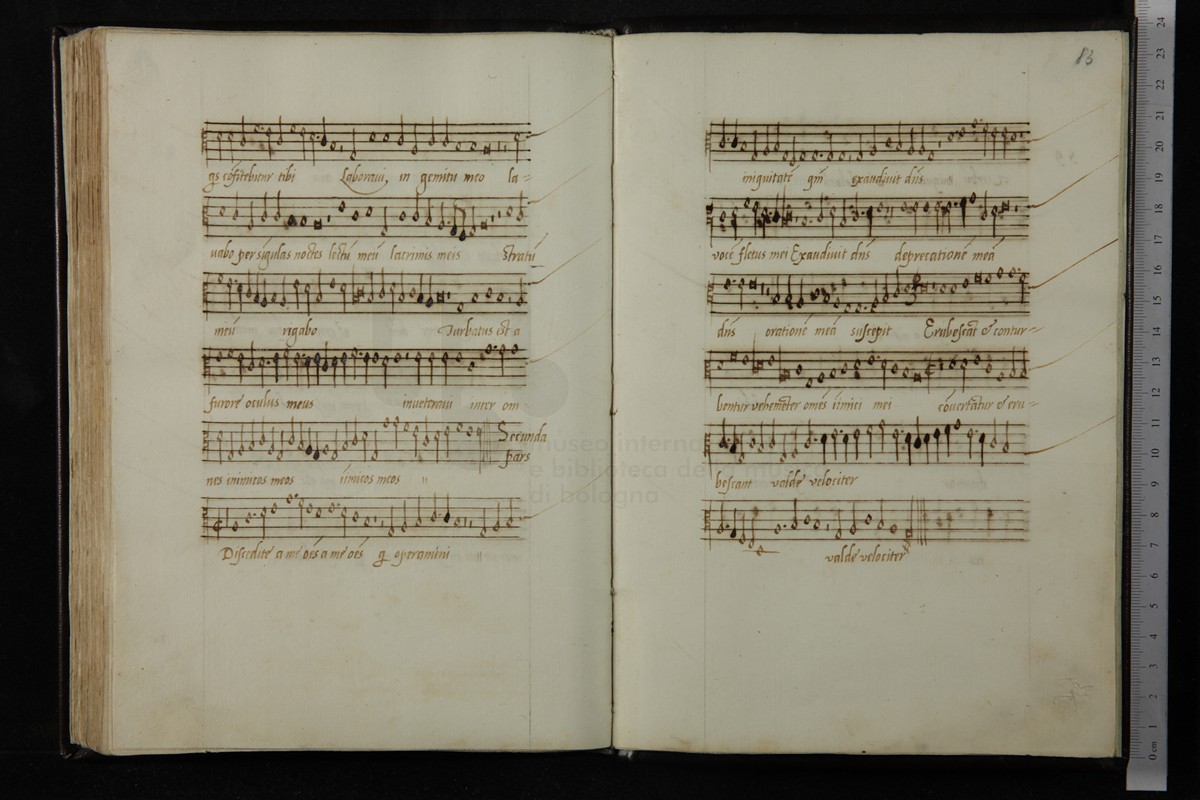 qs cōfitebitur tibi Laboraui, in gemitu meo la=
uabo per sīgulas noctes lectū meū lacrimis meis Stratū
meū rigabo Turbatus est a
furore oculus meus inueteraui inter om
Secunda
pars
nes inimicos meos iīmicos meos "
Discedite a me oēs a me oēs q operamini "
83
iniquitatē qm exaudiuit dns
vocē fletus mei Exaudiuit dns deprecationē meā
dns orationē meā suscepit Erubescāt & contur=
bentur vehemēter omēs iīmici mei cōuertātur & eru=
bescant valde velociter
valde velociter
museo interna
e biblioteca della musica
di bologna
24
23
22
21
20
19
18
17
16
15
14
13
12
11
10
9
8
7
6
5
4
3
2
1
0 cm